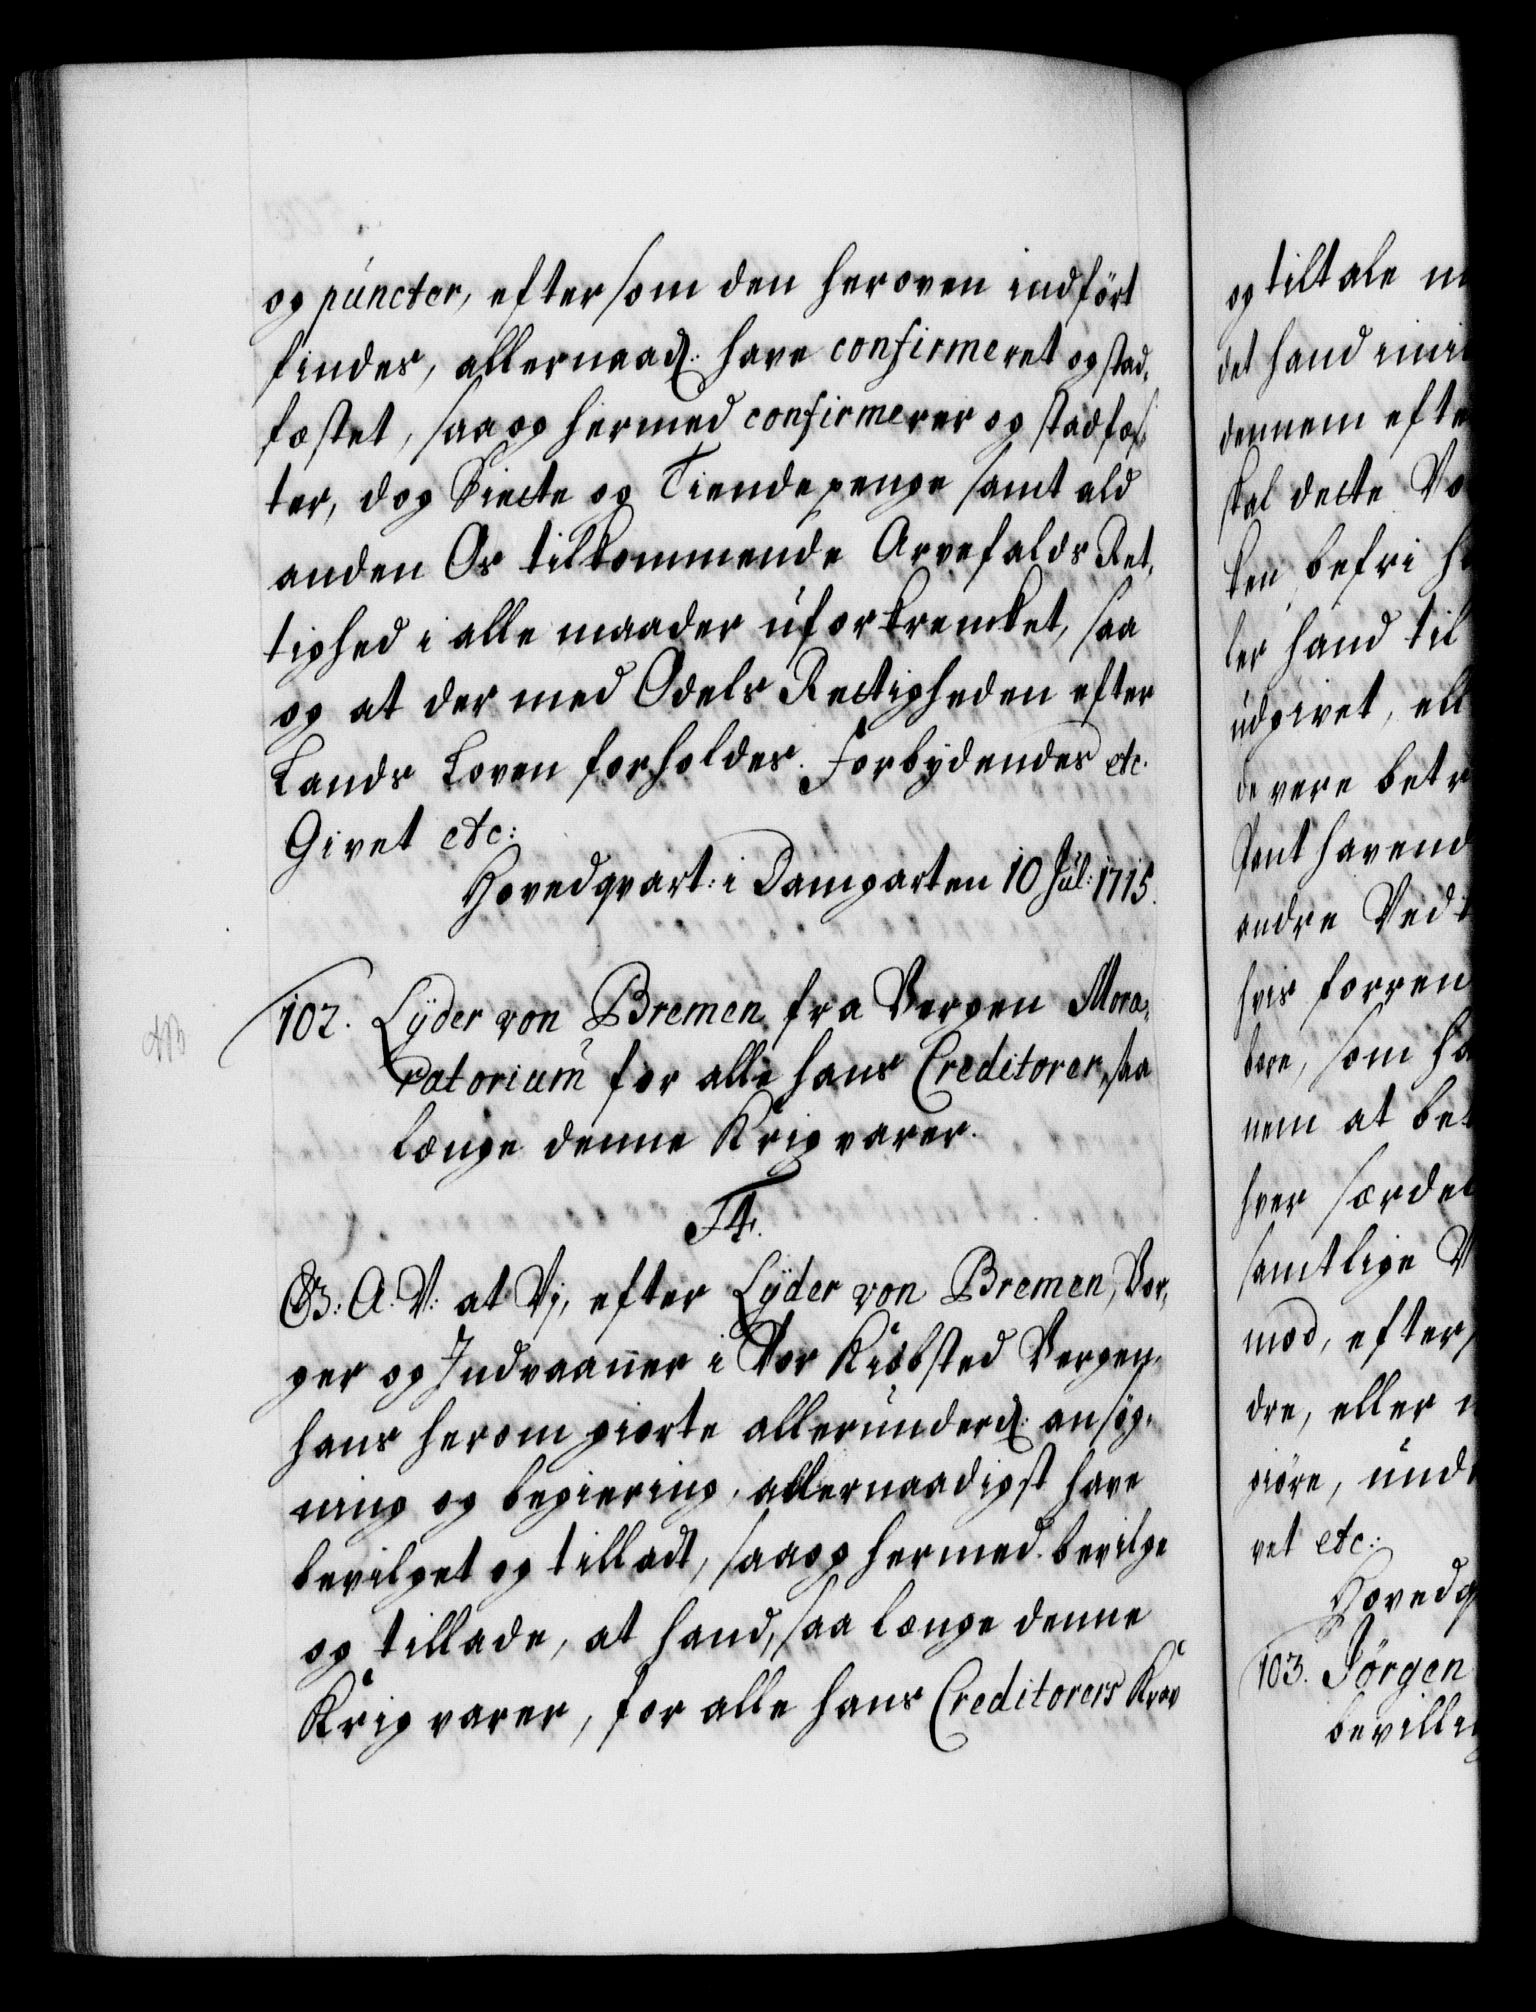 og puncter, eftersom den heroven indført
findes, allernaad: have confirmeret og stad,
fæstet, saa og hermed confirmerer og stadfæs,
ter, dog Siette og Tiende penge samt ald
anden Os tilkommende Arvefalds Ret,
tighed i alle maader uforkrencket, saa
og at der med Odels Rettigheden efter
Lands Loven forholdes. Forbydendes etc.
Givet etc:
Hovedqvart: i Damgarten 10 Jul: 1715.
102. Lyder von Bremen fra Bergen Mora,
ratorium for alle hans Creditorer, saa
længe denne Krig varer.
F4.
G: A. V: at Vj, efter Lyder von Bremen, Bor,
ger og Indvaaner i Vor Kiøbsted Bergen,
hans herom giorte allerunderd: ansøg,
ning og begiering, allernaadigst have
bevilget og tilladt, saa og hermed bevilge
og tillade, at hand, saa længe denne
Krig varer, for alle hans Creditorers Krav
og tiltale
det hand
dennem
skal dette
ken befri
ler hand til
udgivet,
de vere
Pant
andre
hvis
bere, som
nem at
hver
samtlige
mod, efter
dre, eller
giøre,
vet etc:
103. Jørgen